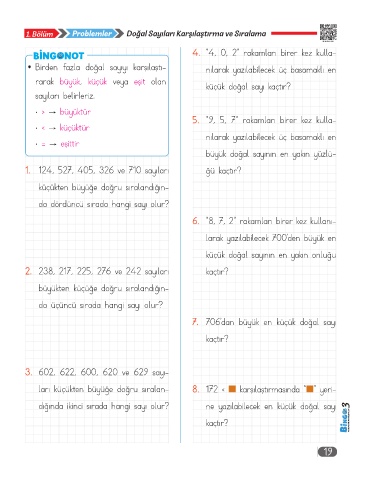 1. Bölüm Problemler Doğal Sayıları Karşılaştırma ve Sıralama
BİNGONOT
• Birden fazla doğal sayıyı karşılaştı-
rarak büyük, küçük veya eşit olan
sayıları belirleriz.
• > → büyüktür
• < → küçüktür
• = → eşittir
1. 124, 527, 405, 326 ve 710 sayıları
küçükten büyüğe doğru sıralandığın-
da dördüncü sırada hangi sayı olur?
2. 238, 217, 225, 276 ve 242 sayıları
büyükten küçüğe doğru sıralandığın-
da üçüncü sırada hangi sayı olur?
3. 602, 622, 600, 620 ve 629 sayı-
ları küçükten büyüğe doğru sıralan-
dığında ikinci sırada hangi sayı olur?
4. "4, 0, 2" rakamları birer kez kulla-
nılarak yazılabilecek üç basamaklı en
küçük doğal sayı kaçtır?
5. "9, 5, 7" rakamları birer kez kulla-
nılarak yazılabilecek üç basamaklı en
büyük doğal sayının en yakın yüzlü-
ğü kaçtır?
6. "8, 7, 2" rakamları birer kez kullanı-
larak yazılabilecek 700'den büyük en
küçük doğal sayının en yakın onluğu
kaçtır?
7. 706'dan büyük en küçük doğal sayı
kaçtır?
8. 172 < ■ karşılaştırmasında "■" yeri-
ne yazılabilecek en küçük doğal sayı
kaçtır?
BİNGO 3
19